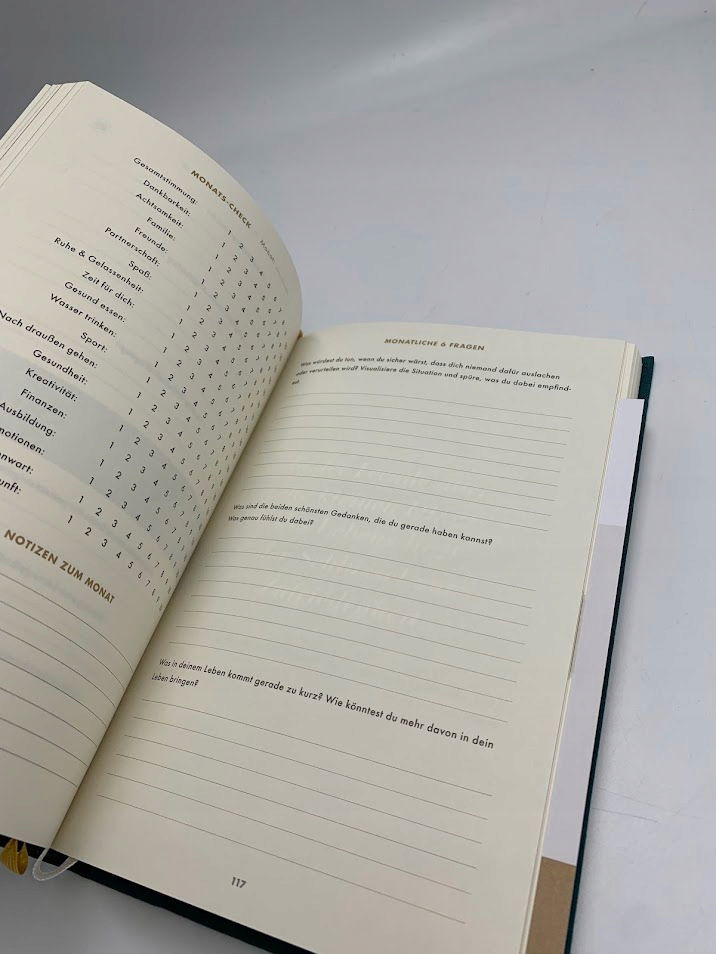 MONATS-CHECK
Monat:
Gesamtstimmung:
1 2 3 4 5 6
Dankbarkeit:
1 2 3 4 5 6
Achtsamkeit:
1 2 3 4 5 6
Familie:
1 2 3 4 5 6
Freunde:
1 2 3 4 5 6
Partnerschaft:
1 2 3 4 5 6
Spaß:
1 2 3 4 5 6
Ruhe & Gelassenheit:
1 2 3 4 5 6
Zeit für dich:
1 2 3 4 5 6
Gesund essen:
1 2 3 4 5 6
Wasser trinken:
1 2 3 4 5 6
Sport:
1 2 3 4 5 6 7
Nach draußen gehen:
1 2 3 4 5 6 7
Gesundheit:
1 2 3 4 5 6 7
Kreativität:
1 2 3 4 5 6 7
Finanzen:
1 2 3 4 5 6 7
Ausbildung:
1 2 3 4 5 6 7
motionen:
1 2 3 4 5 6 7
nwart:
1 2 3 4 5 6 7
unft:
1 2 3 4 5 6 7
NOTIZEN ZUM MONAT
MONATLICHE 6 FRAGEN
Was würdest du tun, wenn du sicher wärst, dass dich niemand dafür auslachen
oder verurteilen wird? Visualisiere die Situation und spüre, was du dabei empfind-
est.
Was sind die beiden schönsten Gedanken, die du gerade haben kannst?
Was genau fühlst du dabei?
Was in deinem Leben kommt gerade zu kurz? Wie könntest du mehr davon in dein
Leben bringen?
117